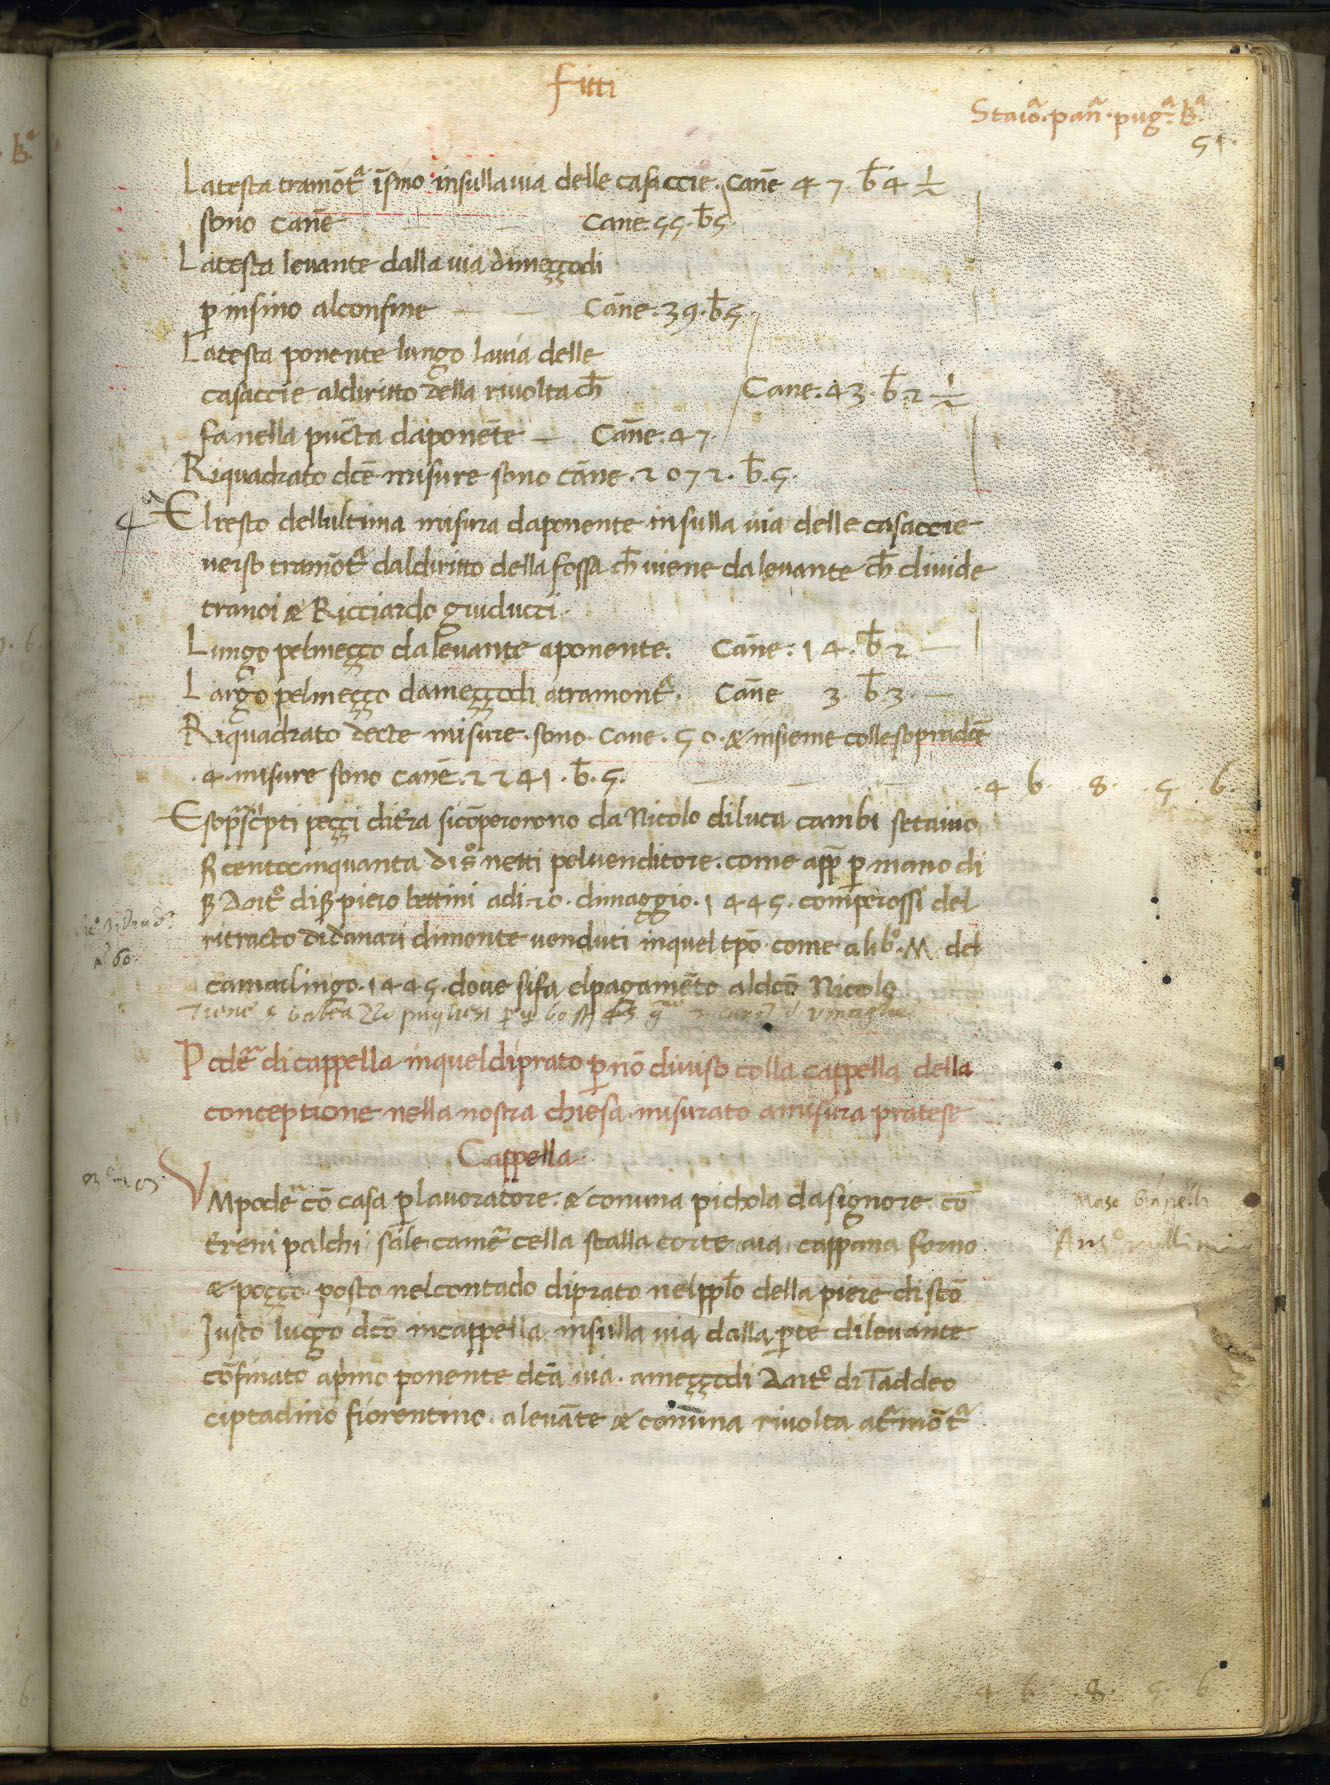 Fitti
Staioᵃ. panᵃ. pugᵃ. bᵃ.
51.
La testa tramōtᵃ īsino insulla via delle casaccie. Cañe 47. b̄ 4 ½
sono cañe Cane. 55. b̄ 5.
La testa levante dalla via dimeggodi
p̱ insino alconfine Cāne. 39. b̄ 5.
La testa ponente lungo lavia delle
casaccie aldiritto della rivolta ch̄ Cane. 43. b̄. 2 ½
fa nella pūcta daponēte — Cāne. 47.
Riquadrato dc̄e misure sono cāne. 2072. b̄. 5.
4ᵃ El resto dellultima misura daponente insulla via delle casaccie
verso tramōtᵃ daldiritto della fossa ch̄ viene da levante ch̄ divide
tranoi & Ricciardo guiducci.
Lungo pelmeggo dalevante aponente. Cāne: 14. b̄ 2 —
Largo pelmeggo dameggodi atramontᵃ. Cāne 3 b̄ 3. —
Riquadrato decte misure. sono. cane. 50. & insieme colle sopradc̄e
.4. misure sono canē. 2241. b̄. 5. 4 6. 8. 5. 6.
E sop̄rasc̄pti peggi dit̄rra sicōperorono da Nicolo diluca cambi setaiuo
cento cinquanta dis̊ netti pelvenditore. come app̄ p̱ mano di
Antᵒ. di piero bettini adi 20. dimaggio. 1445. comperossi del
ritracto didanari dimonte venduti inquel tp̄o. come alibᵒ. M. del
camarlingo. 1445. dove sifa elpagamēto aldc̄o Nicolo
60.
Poderᵉ di cappella inqueldiprato p̱ nō diviso colla cappella della
conceptione nella nostra chiesa. misurato amisura pratese
Cappella.
VMpoderᵉ cō casa p̱ lavoratore. & conuna pichola dasignore. cō
terreni palchi sale camerᵉ cella stalla corte aia cappana forno
& poggo posto nelcontado diprato nelppl̄o della pieve di sc̄ō
Justo luogo dc̄o incappella. insulla via dalla p̱te dilevante
cōfinato ap̄imo ponente dc̄a via. ameggodi Antᵒ. di Taddeo
ciptadino fiorentino. alevāte & comuna rivolta atramōtᵃ
Maso
Antᵒ
4 6 .8. 5. 6